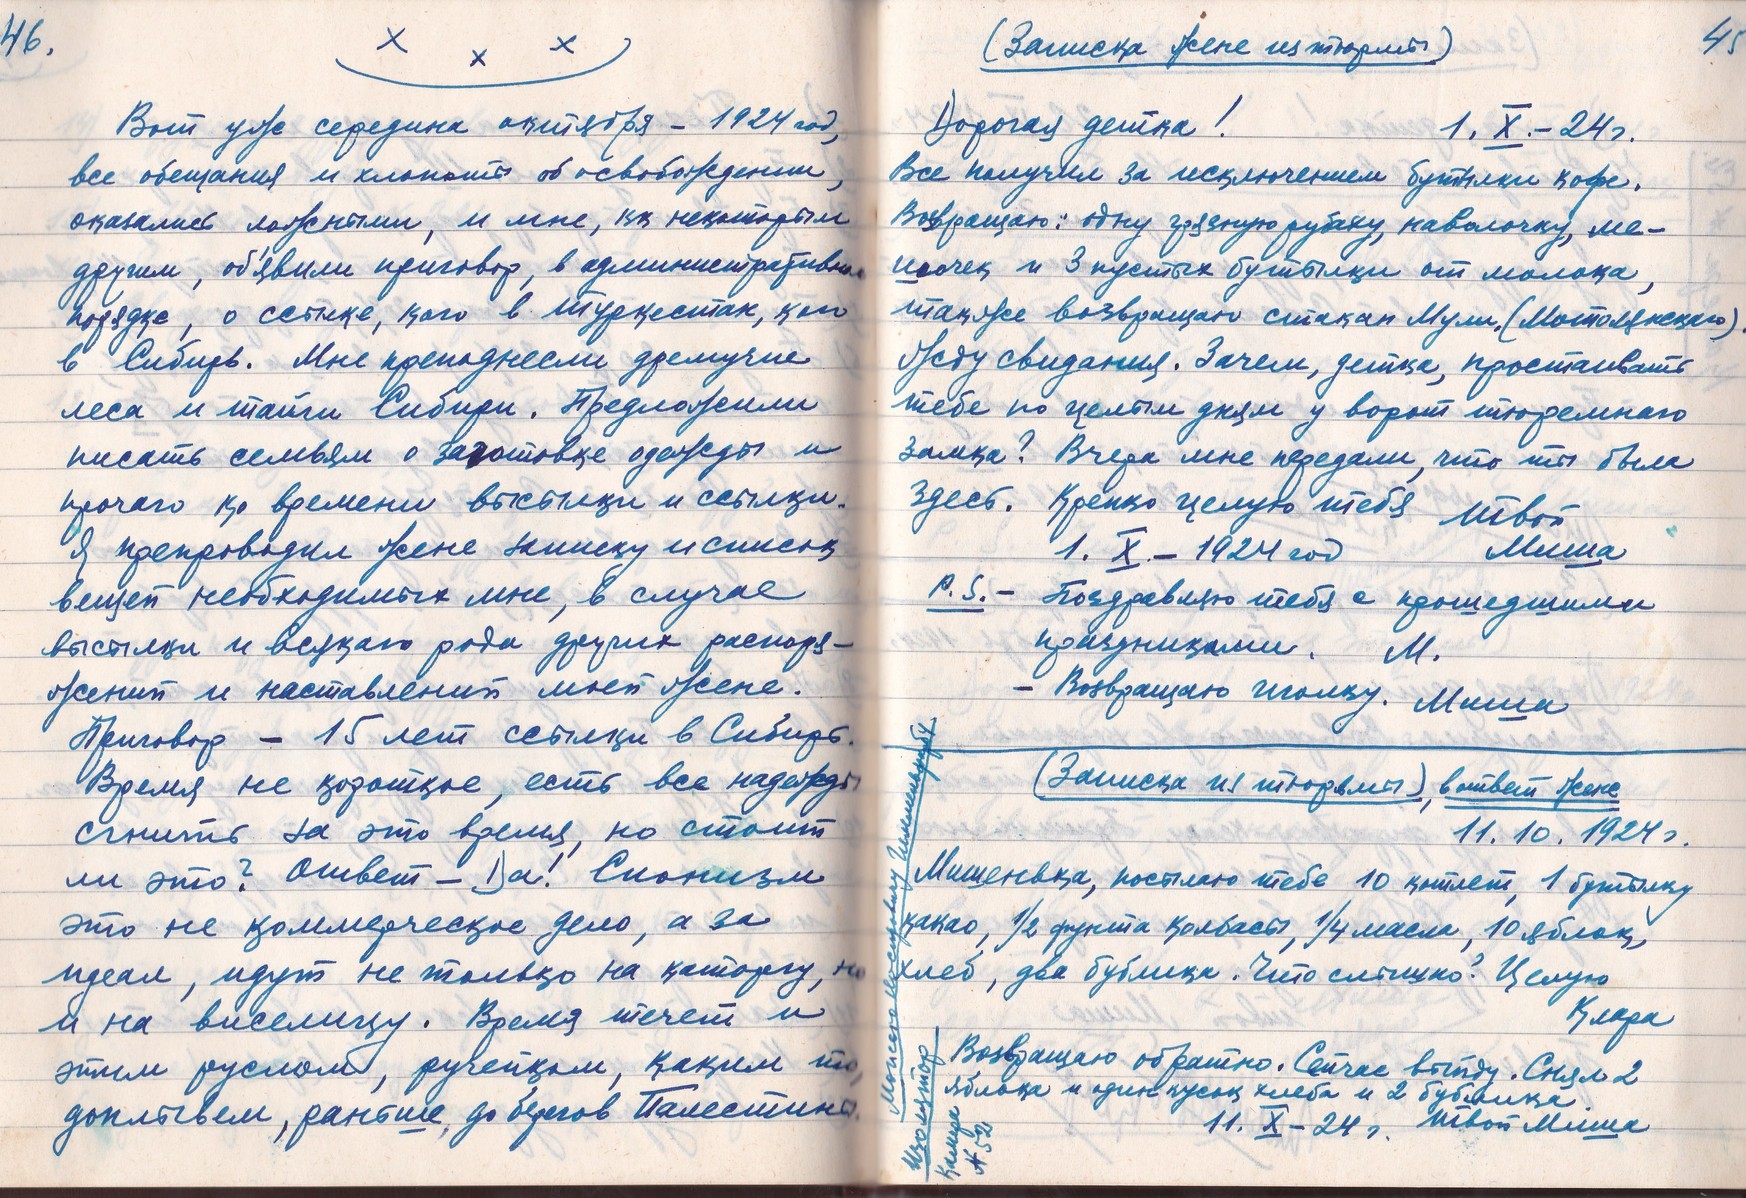 46.
х х х
Вот уже середина октября – 1924 год,
все обещания и хлопоты об освобождении,
оказались ложными, и мне, как некоторым
другим, об'явили приговор, в административном
порядке, о ссылке, кого в Туркестан, кого
в Сибирь. Мне преподнесли дремучие
леса и тайги Сибири. Предложили
писать семьям о заготовке одежды и
прочаго ко времени высылки и ссылки.
Я препроводил жене записку и список
вещей необходимых мне, в случае
высылки и всякаго рода других распоря-
жений и наставлений моей жене.
Приговор – 15 лет ссылки в Сибирь.
Время не короткое, есть все надежды
сгнить за это время, но стоит
ли это? Ответ – Да! Сионизм
это не коммерческое дело, а за
идеал, идут не только на каторгу, но
и на виселицу. Время течет и
этим руслом, ручейком, каким то,
доплывем, раньше, до берегов Палестины.
45
(Записка жене из тюрьмы)
Дорогая детка! 1. X. – 24 г.
Все получил за исключением бутылки кофе.
Возвращаю: одну грязную рубаху, наволочку, ме-
шочек и 3 пустых бутылки от молока,
также возвращаю стакан Мули, (Мотолянскаго).
Жду свидания. Зачем, детка, простаивать
тебе по целым дням у ворот тюремнаго
замка? Вчера мне передали, что ты была
здесь. Крепко целую тебя Твой
1. X. – 1924 год Миша
P.S. – Поздравляю тебя с прошедшими
праздниками. М.
– Возвращаю иголку. Миша
(Записка из тюрьмы), в ответ жене
11. 10. 1924 г.
Мишенька, посылаю тебе 10 котлет, 1 бутылку
какао, 1/2 фунта колбасы, 1/4 масла, 10 яблок,
хлеб, два бублика. Что слышно? Целую
Клара
Возвращаю обратно. Сейчас выйду. Снял 2
яблока и один кусок хлеба и 2 бублика.
11. X – 24 г. Твой Миша
Изолятор
Камера
№ 52